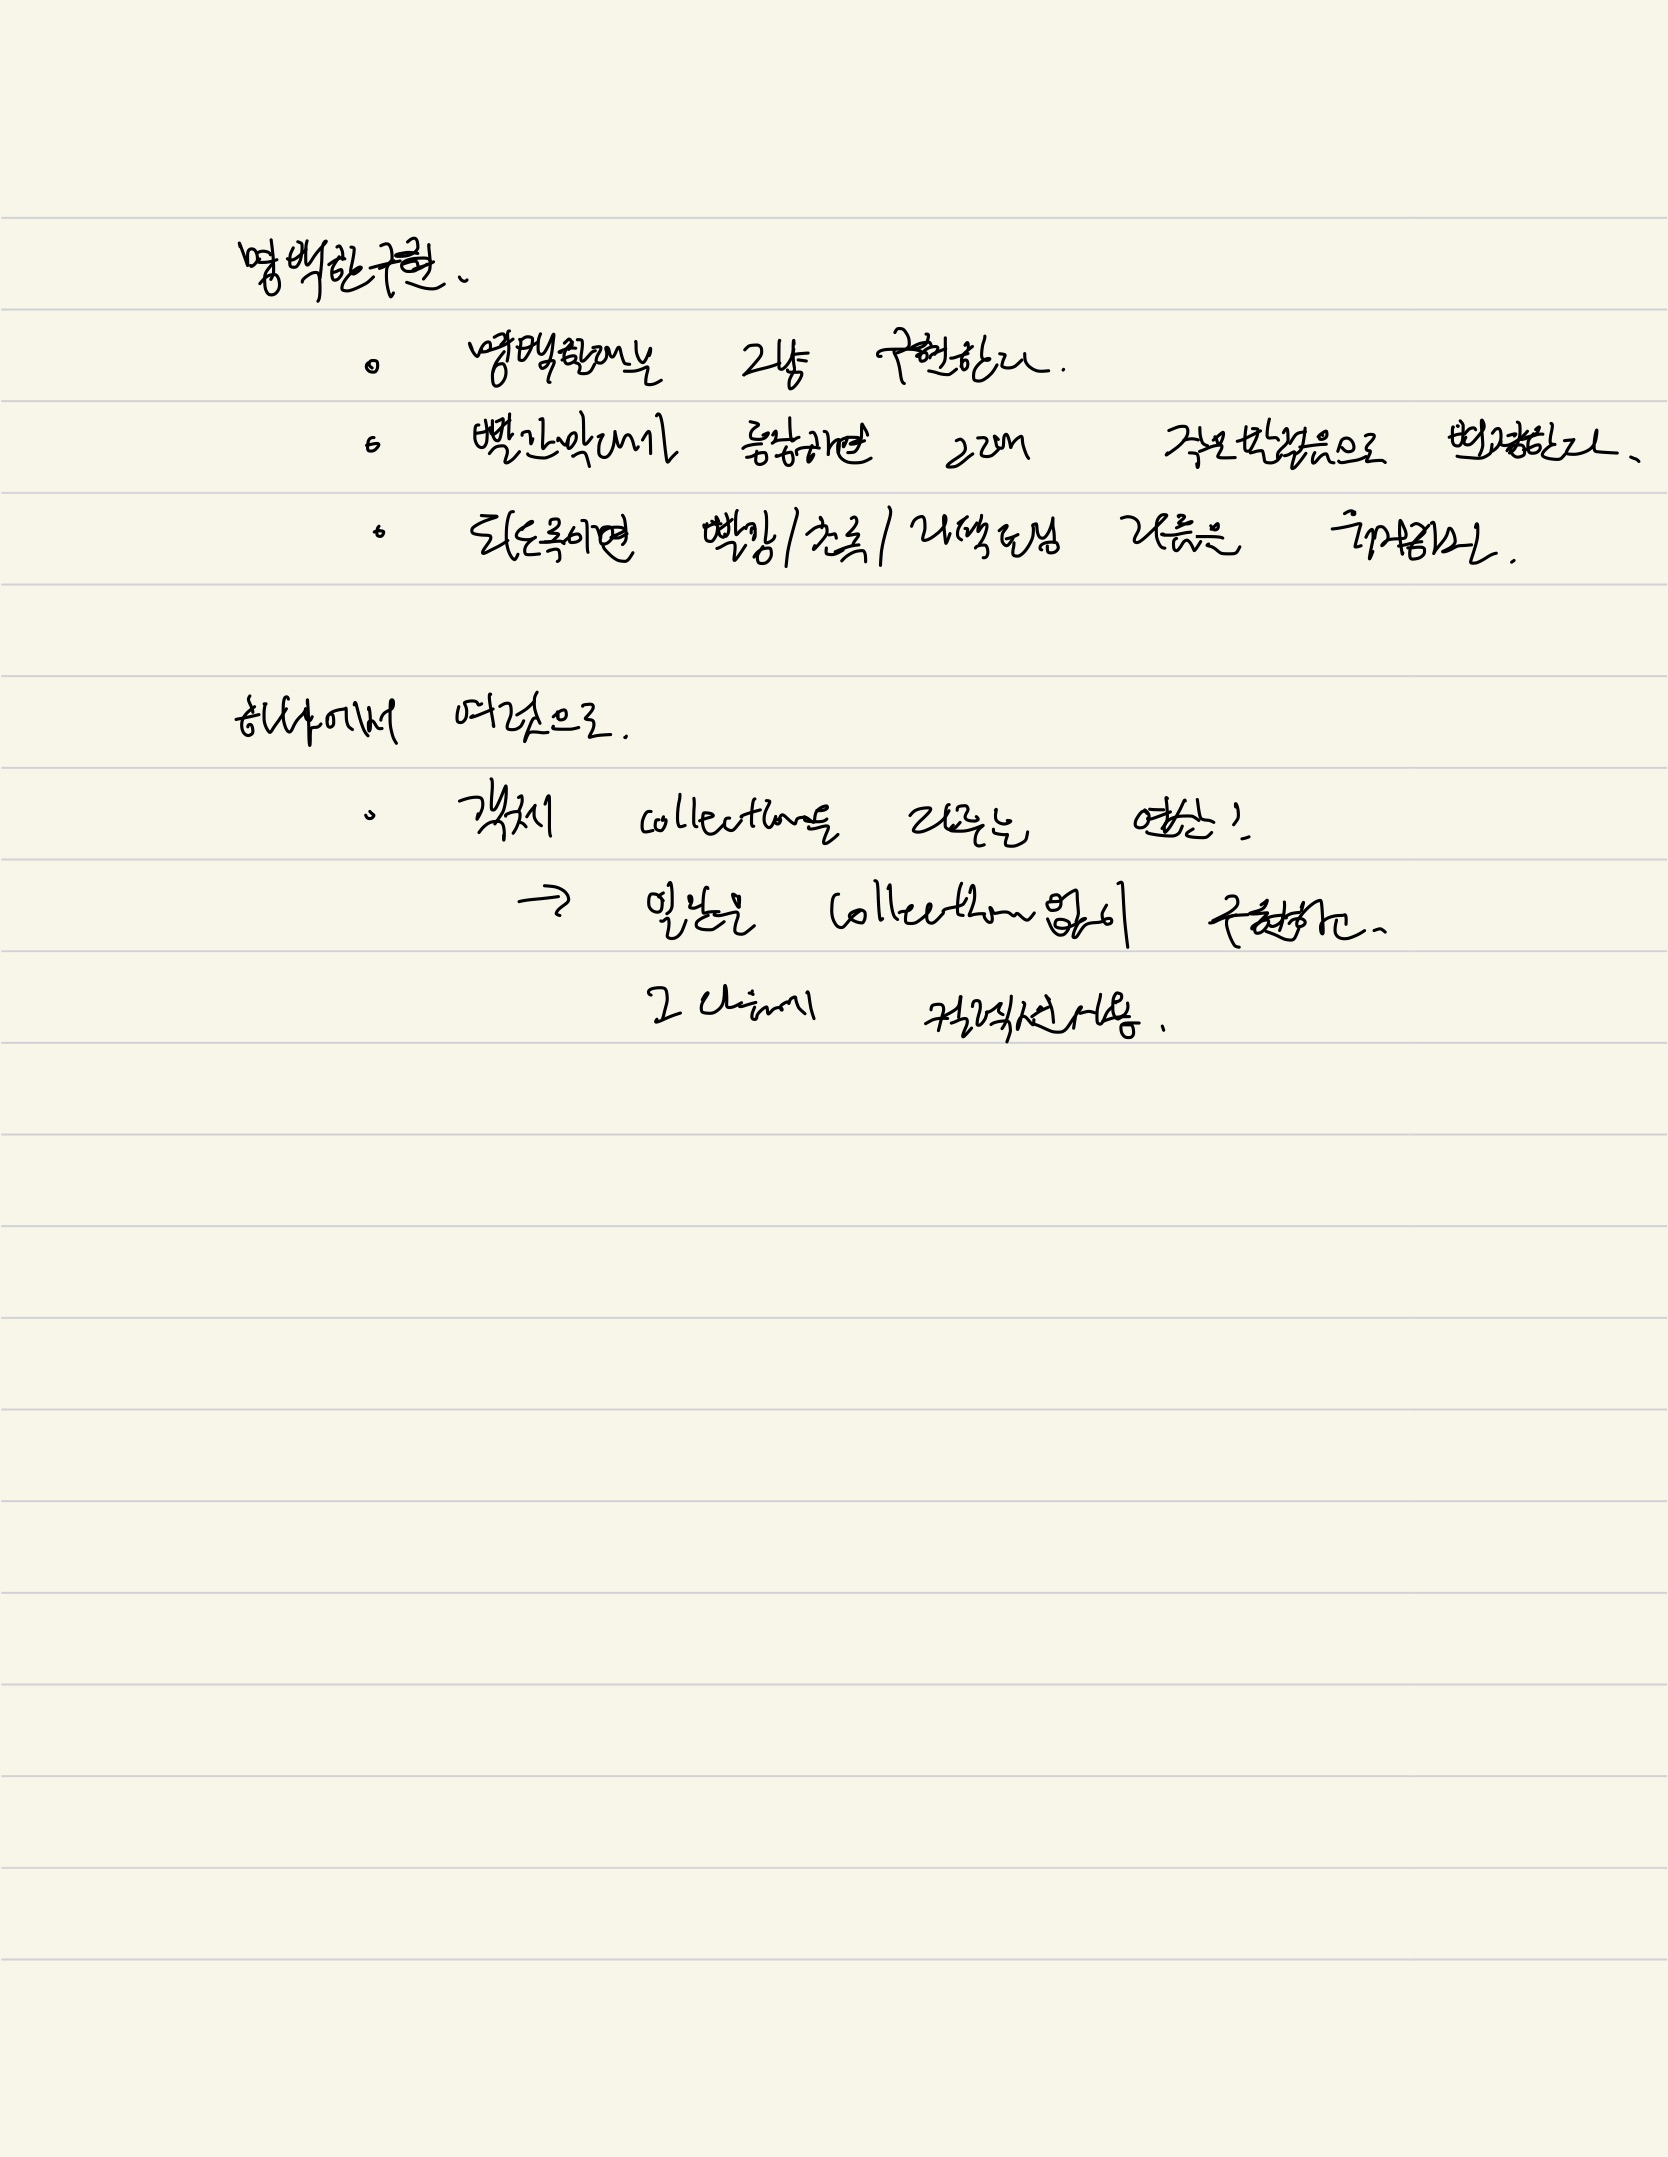 명백한 구현.
명백할때는 그냥 구현한다.
빨간막대가 등장하면 그때 작은 발걸음으로 변경한다.
되도록이면 빨강/초록/리팩토링 리듬은 유지하라.
하나에서 여럿으로.
객체 collection을 다루는 연산?
→ 일단은 Collection 없이 구현하고.
그 다음에 컬렉션 사용.